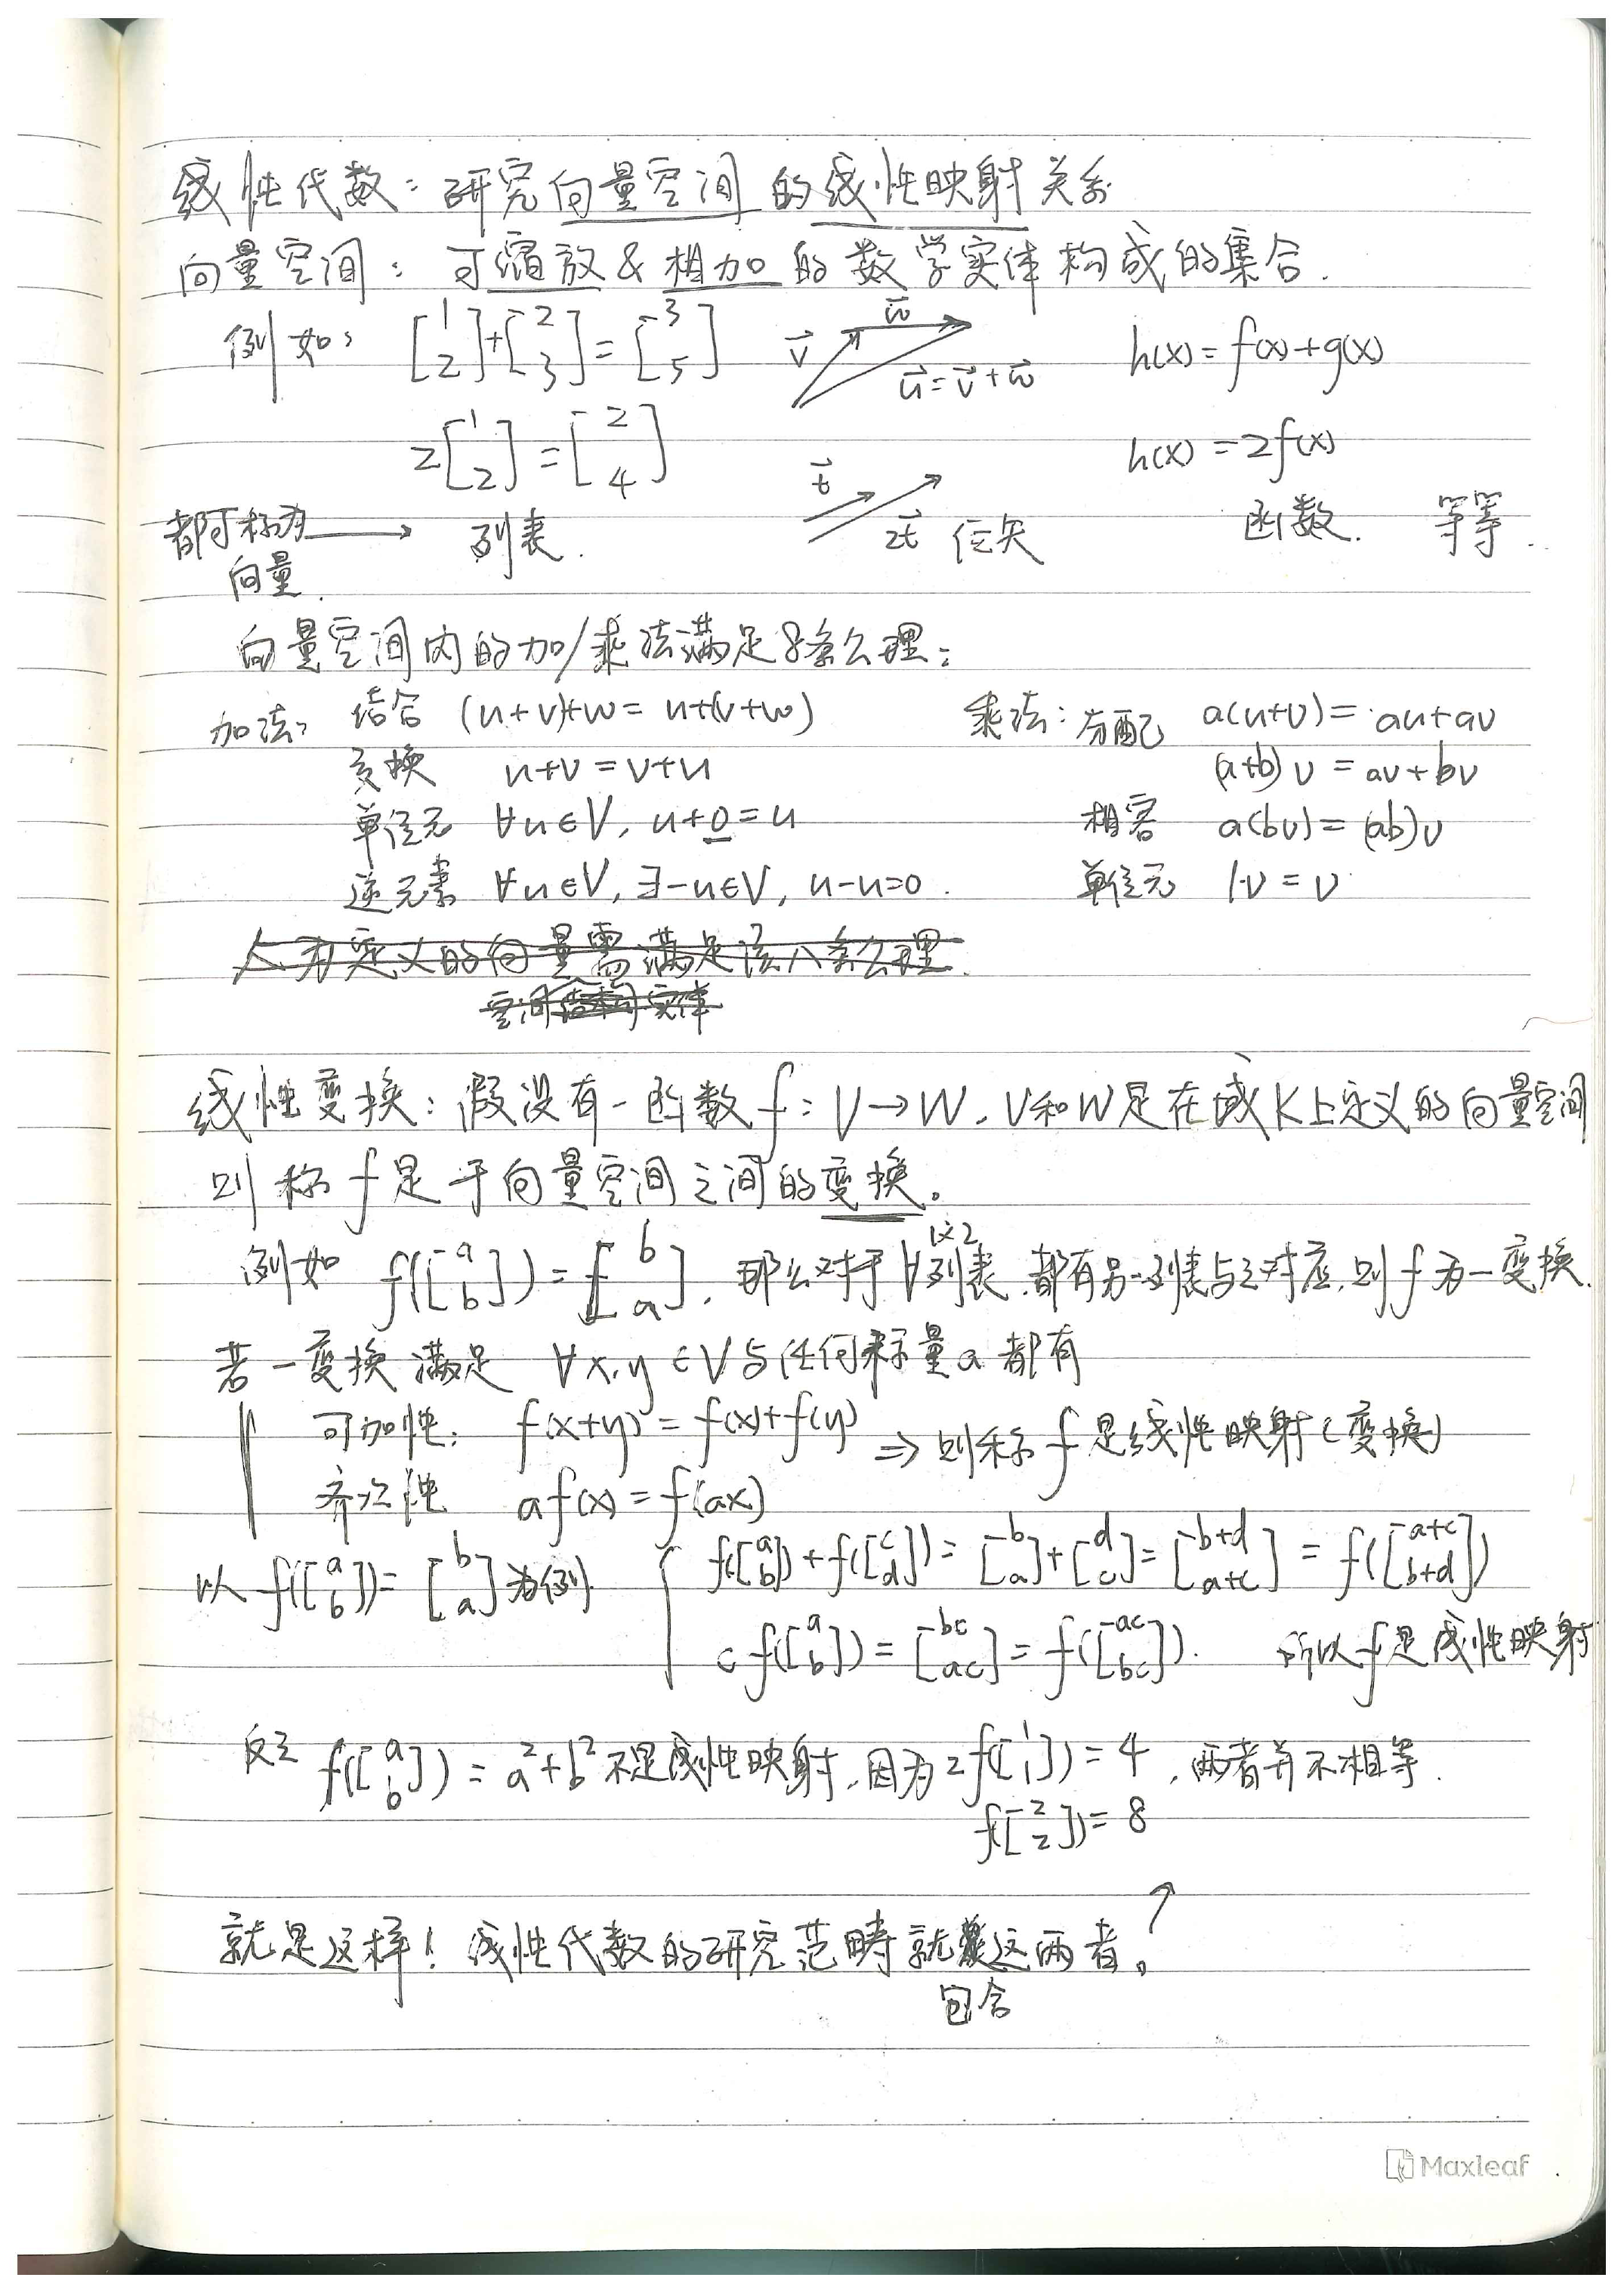 线性代数：研究向量空间的线性映射关系
向量空间：可缩放&相加的数学实体构成的集合.
例如： [1 2]+[2 3]=[3 5] v⃗ w⃗ u⃗=v⃗+w⃗ h(x)=f(x)+g(x)
2[1 2]=[2 4] t⃗ 2t⃗ h(x)=2f(x)
都可称为向量. → 列表. 位矢 函数. 等等.
向量空间内的加/乘法满足8条公理：
加法： 结合 (u+v)+w=u+(v+w) 乘法：分配 a(u+v)=au+av
交换 u+v=v+u (a+b)v=av+bv
单位元 ∀u∈V, u+0=u 相容 a(bv)=(ab)v
逆元素 ∀u∈V, ∃-u∈V, u-u=0. 单位元 1·v=v
人为定义的向量需满足该八条公理.
空间结构实体
线性变换：假设有一函数f：V→W，V和W是在域K上定义的向量空间
则称f是于向量空间之间的变换。
例如 f([a b])=[b a]，那么对于∀1×2列表，都有另一列表与之对应，则f为一变换.
若一变换满足 ∀x,y∈V与任何标量a都有
可加性： f(x+y)=f(x)+f(y) ⇒则称f是线性映射(变换)
齐次性 af(x)=f(ax)
以f([a b])=[b a]为例. f([a b])+f([c d])=[b a]+[d c]=[b+d a+c]=f([a+c b+d])
cf([a b])=[bc ac]=f([ac bc]). 所以f是线性映射
反之 f([a b])=a²+b²不是线性映射，因为2f([1 1])=4，两者并不相等.
f([2 2])=8
↗
就是这样！线性代数的研究范畴就包含这两者。
Maxleaf